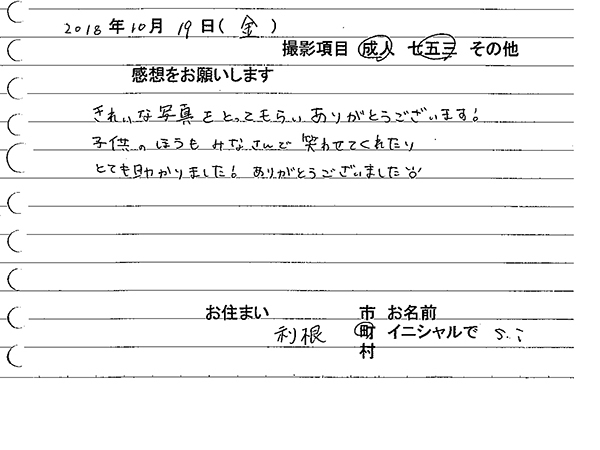 2018年10月19日(金)
撮影項目 成人 七五三 その他
感想をお願いします
きれいな写真をとってもらいありがとうございます!
子供のほうもみなさんで笑わせてくれたり
とても助かりました! ありがとうございました
お住まい 市 お名前
利根 町 イニシャルで S.i
村